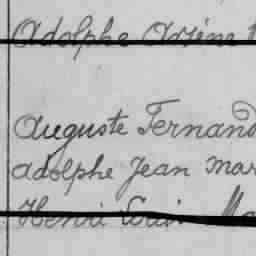 Adolphe Arsène
Auguste Fernand
Adolphe Jean Mar
Henri Louis Ma